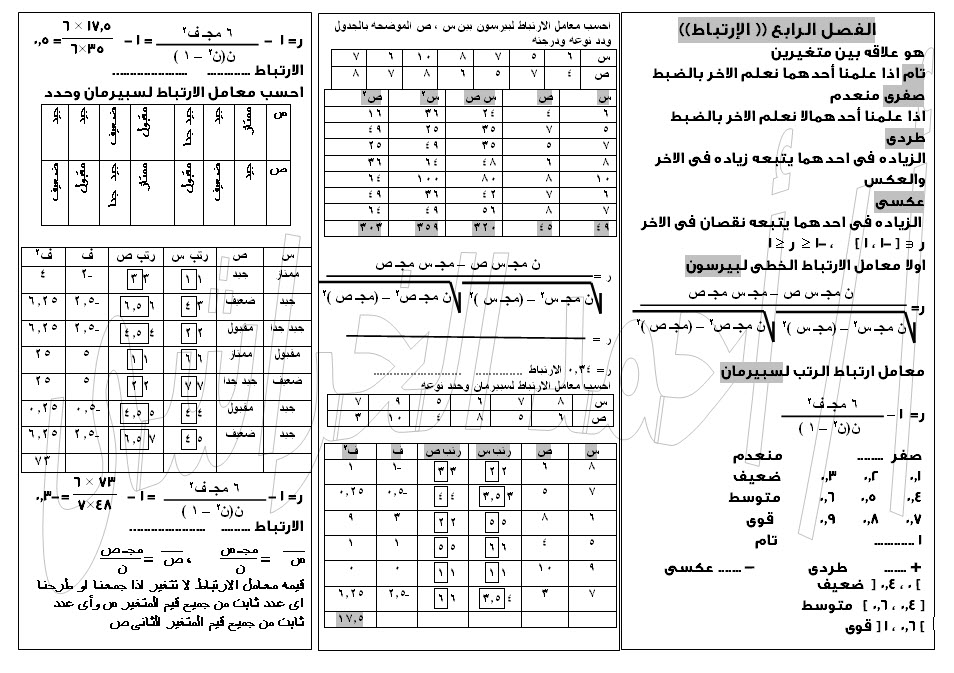 الفصل الرابع (( الإرتباط))
هو علاقه بين متغيرين
تام اذا علمنا أحدهما نعلم الاخر بالضبط
صفرى منعدم
اذا علمنا أحدهمالا نعلم الاخر بالضبط
طردى
الزياده فى احدهما يتبعه زياده فى الاخر
والعكس
عكسى
الزياده فى احدهما يتبعه نقصان فى الاخر
ر ∋ [ -١ ، ١ ] ، -١ ≤ ر ≤ ١
اولا معامل الارتباط الخطى لبيرسون
ن مجـ س ص – مجـ س مجـ ص
ر=
ن مجـ س٢ – (مجـ س )٢ ن مجـ ص٢ – (مجـ ص )٢
معامل ارتباط الرتب لسبيرمان
٦ مجـ ف٢
ر= ١ –
ن(ن٢ – ١ )
صفر ....... منعدم
٠,١ ٠,٢ ٠,٣ ضعيف
٠,٤ ٠,٥ ٠,٦ متوسط
٠,٧ ٠,٨ ٠,٩ قوى
١ ........... تام
+ ...... طردى – ...... عكسى
] ٠ ، ٠,٤ [ ضعيف
[ ٠,٤ ، ٠,٦ ] متوسط
] ٠,٦ ، ١ [ قوى
احسب معامل الارتباط لبيرسون بين س ، ص الموضحه بالجدول
ودد نوعه ودرجته
س ٦ ٥ ٧ ٨ ١٠ ٦ ٧
ص ٤ ٧ ٥ ٦ ٨ ٧ ٨
س ص س ص س٢ ص٢
٦ ٤ ٢٤ ٣٦ ١٦
٥ ٧ ٣٥ ٢٥ ٤٩
٧ ٥ ٣٥ ٤٩ ٢٥
٨ ٦ ٤٨ ٦٤ ٣٦
١٠ ٨ ٨٠ ١٠٠ ٦٤
٦ ٧ ٤٢ ٣٦ ٤٩
٧ ٨ ٥٦ ٤٩ ٦٤
٤٩ ٤٥ ٣٢٠ ٣٥٩ ٣٠٣
ن مجـ س ص – مجـ س مجـ ص
ر =
ن مجـ س٢ – (مجـ س )٢ ن مجـ ص٢ – (مجـ ص )٢
ر =
ر= ٠,٣٤ الارتباط ............ ......................
احسب معامل الارتباط لسبيرمان وحدد نوعه
س ٨ ٧ ٦ ٥ ٩ ٧
ص ٦ ٥ ٨ ٤ ١٠ ٣
س ص رتب س رتب ص ف ف٢
٨ ٦ ٢ ٢ ٣ ٣ -١ ١
٧ ٥ ٣ ٣,٥ ٤ ٤ -٠,٥ ٠,٢٥
٦ ٨ ٥ ٥ ٢ ٢ ٣ ٩
٥ ٤ ٦ ٦ ٥ ٥ ١ ١
٩ ١٠ ١ ١ ١ ١ ٠ ٠
٧ ٣ ٤ ٣,٥ ٦ ٦ -٢,٥ ٦,٢٥
١٧,٥
٦ مجـ ف٢ ١٧,٥ × ٦
ر= ١ – = ١ – = ٠,٥
ن(ن٢ – ١ ) ٣٥×٦
الارتباط ............ ......................
احسب معامل الارتباط لسبيرمان وحدد
س ممتاز جيد جيد جدا مقبول ضعيف جيد جيد
ص جيد ضعيف مقبول ممتاز جيد جدا مقبول ضعيف
س ص رتب س رتب ص ف ف٢
ممتاز جيد ١ ١ ٣ ٣ -٢ ٤
جيد ضعيف ٣ ٤ ٦ ٦,٥ -٢,٥ ٦,٢٥
جيد جدا مقبول ٢ ٢ ٤ ٤,٥ -٢,٥ ٦,٢٥
مقبول ممتاز ٦ ٦ ١ ١ ٥ ٢٥
ضعيف جيد جدا ٧ ٧ ٢ ٢ ٥ ٢٥
جيد مقبول ٤ ٤ ٥ ٤,٥ -٠,٥ ٠,٢٥
جيد ضعيف ٥ ٤ ٧ ٦,٥ -٢,٥ ٦,٢٥
٧٣
٦ مجـ ف٢ ٧٣ × ٦
ر= ١ – = ١ – = -٠,٣
ن(ن٢ – ١ ) ٤٨×٧
الارتباط ......... ......................
س = مجـ س ، ص = مجـ ص
ن ن
قيمه معامل الارتباط لا تتغير اذا جمعنا او طرحنا
اى عدد ثابت من جميع قيم المتغير س وأى عدد
ثابت من جميع قيم المتغير الثانى ص